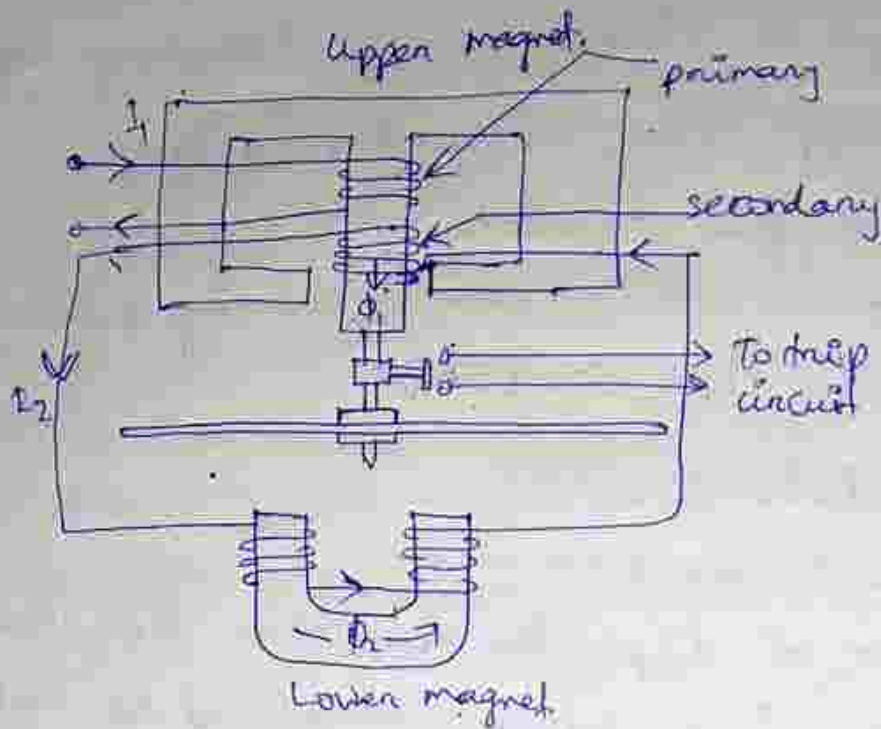 Upper magnet.
primary
I₁
secondary
Φ₁
To trip
circuit
I₂
Φ₂
Lower magnet